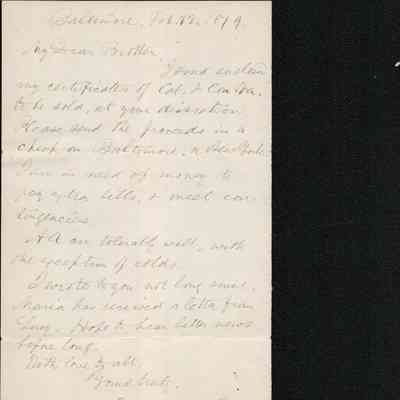 Baltimore, Feb. 12, 1879.
My Dear Brother,
I send enclosed
my certificates of Cal. & Con. Va.
to be sold, at your discretion
Please send the proceeds in a
check on Baltimore, or New York.
I am in need of money to
pay extra bills, & meet con-
tingencies.
All are tolerably well, with
the exception of colds.
I wrote to you not long since.
Maria has received a letter from
Lucy. Hope to hear better news
before long.
With love to all.
Yours truly,